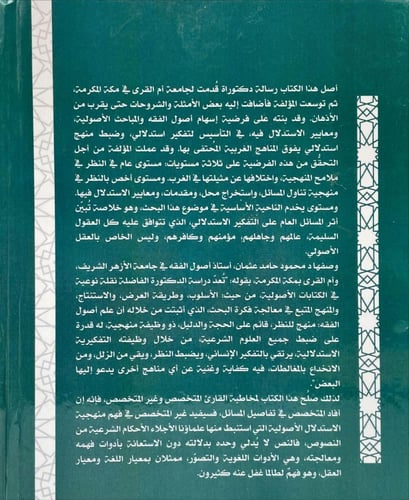 أصل هذا الكتاب رسالة دكتوراة قُدمت لجامعة أم القرى في مكة المكرمة،
ثم توسعت المؤلفة فأضافت إليه بعض الأمثلة والشروحات حتى يقرب من
الأذهان. وقد بنته على فرضية إسهام أصول الفقه والمباحث الأصولية،
ومعايير الاستدلال فيه، في التأسيس لتفكير استدلالي، وضبط منهج
استدلالي يفوق المناهج الغربية المحتفى بها. وقد عملت المؤلفة من أجل
التحقُّق من هذه الفرضية على ثلاثة مستويات: مستوى عام في النظر في
ملامح المنهجية، واختلافها عن مثيلتها في الغرب. ومستوى أخص بالنظر في
منهجية تناول المسائل، واستخراج محل، ومقدمات، ومعايير الاستدلال فيها.
ومستوى يخدم الناحية الأساسية في موضوع هذا البحث، وهو خلاصة تُبيّن
أثر المسائل العام على التفكير الاستدلالي، الذي تتوافق عليه كل العقول
السليمة، عالمهم وجاهلهم، مؤمنهم وكافرهم، وليس الخاص بالعقل
الأصولي.
وصفها د محمود حامد عثمان، أستاذ أصول الفقه في جامعة الأزهر الشريف،
وأم القرى بمكة المكرمة بقوله: "تُعدّ دراسة الدكتورة الفاضلة نقلة نوعية
في الكتابات الأصولية، من حيث الأسلوب، وطريقة العرض، والاستنتاج،
والمنهج المتبع في معالجة فكرة البحث، الذي أثبتت من خلاله أن علم أصول
الفقه: منهج للنظر، قائم على الحجة والدليل، ذو وظيفة منهجية له قدرة
على ضبط جميع العلوم الشرعية، من خلال وظيفته التفكيرية
الاستدلالية، يرتقي بالتفكير الإنساني، ويضبط النظر، ويقي من الزلل، ومن
الانخداع بالمغالطات، فيه كفاية وغنية عن أي مناهج أخرى يدعو إليها
البعض".
لذلك صلح هذا الكتاب لمخاطبة القارئ المتخصص وغير المتخصص، فإنه إن
أفاد المتخصص في تفاصيل المسائل، فسيفيد غير المتخصص في فهم منهجية
الاستدلال الأصولية التي استنبط منها علماؤنا الأجلاء الأحكام الشرعية من
النصوص، فالنص لا يُدلي وحده بدلالته دون الاستعانة بأدوات فهمه
ومعالجته، وهي الأدوات اللغوية والتصوّر، ممثلان بمعيار اللغة ومعيار
العقل، وهو فهمٌ لطالما غفل عنه كثيرون.